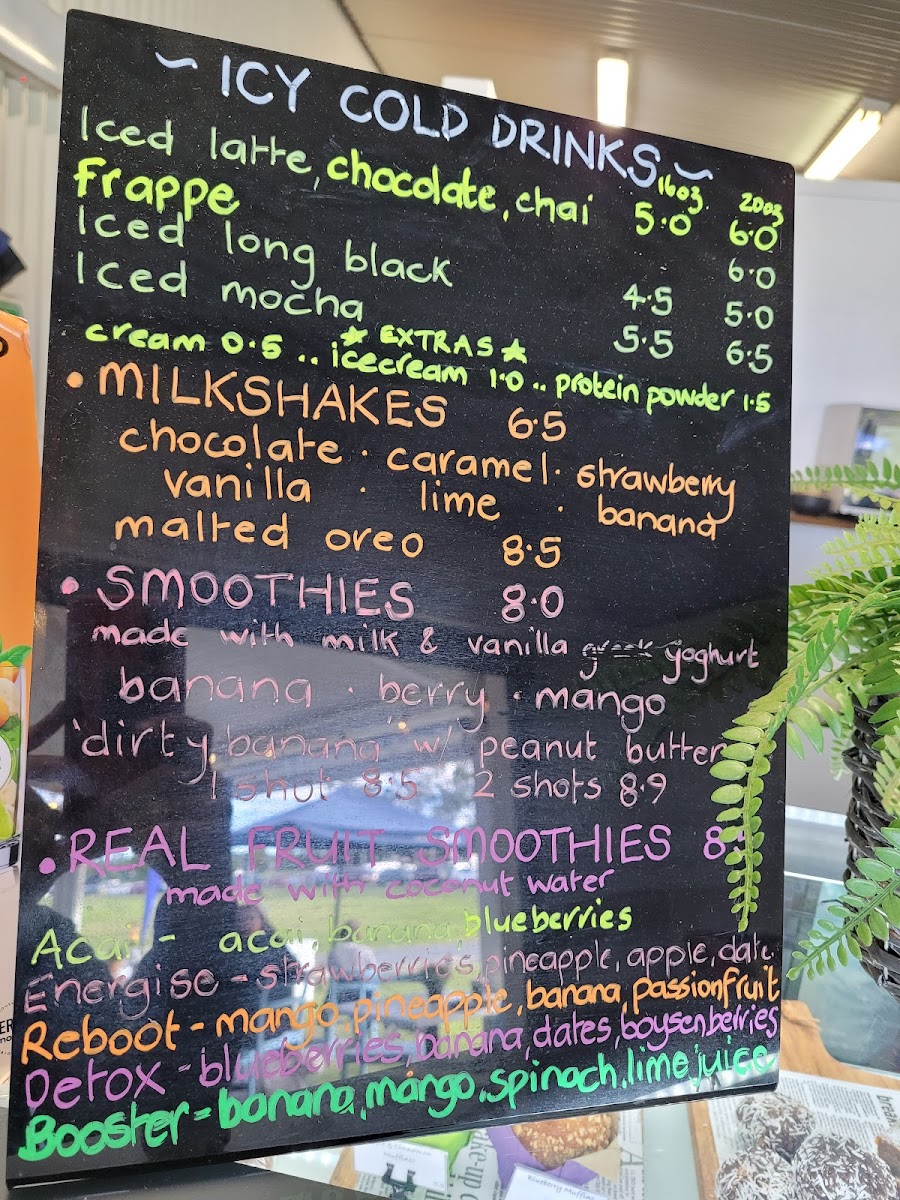 ~ ICY COLD DRINKS ~
16oz 20oz
Iced latte, chocolate, chai 5.0 6.0
Frappe 6.0
Iced long black 4.5 5.0
Iced mocha 5.5 6.5
★ EXTRAS ★
cream 0.5 .. icecream 1.0 .. protein powder 1.5
• MILKSHAKES 6.5
chocolate · caramel · strawberry
vanilla · lime · banana
malted oreo 8.5
• SMOOTHIES 8.0
made with milk & vanilla greek yoghurt
banana · berry · mango
'dirty banana' w/ peanut butter
1 shot 8.5 2 shots 8.9
• REAL FRUIT SMOOTHIES
made with coconut water
Acai - acai, banana, blueberries
Energise - strawberries, pineapple, apple, date
Reboot - mango, pineapple, banana, passionfruit
Detox - blueberries, banana, dates, boysenberries
Booster = banana, mango, spinach, lime juice
Blueberry Muffins